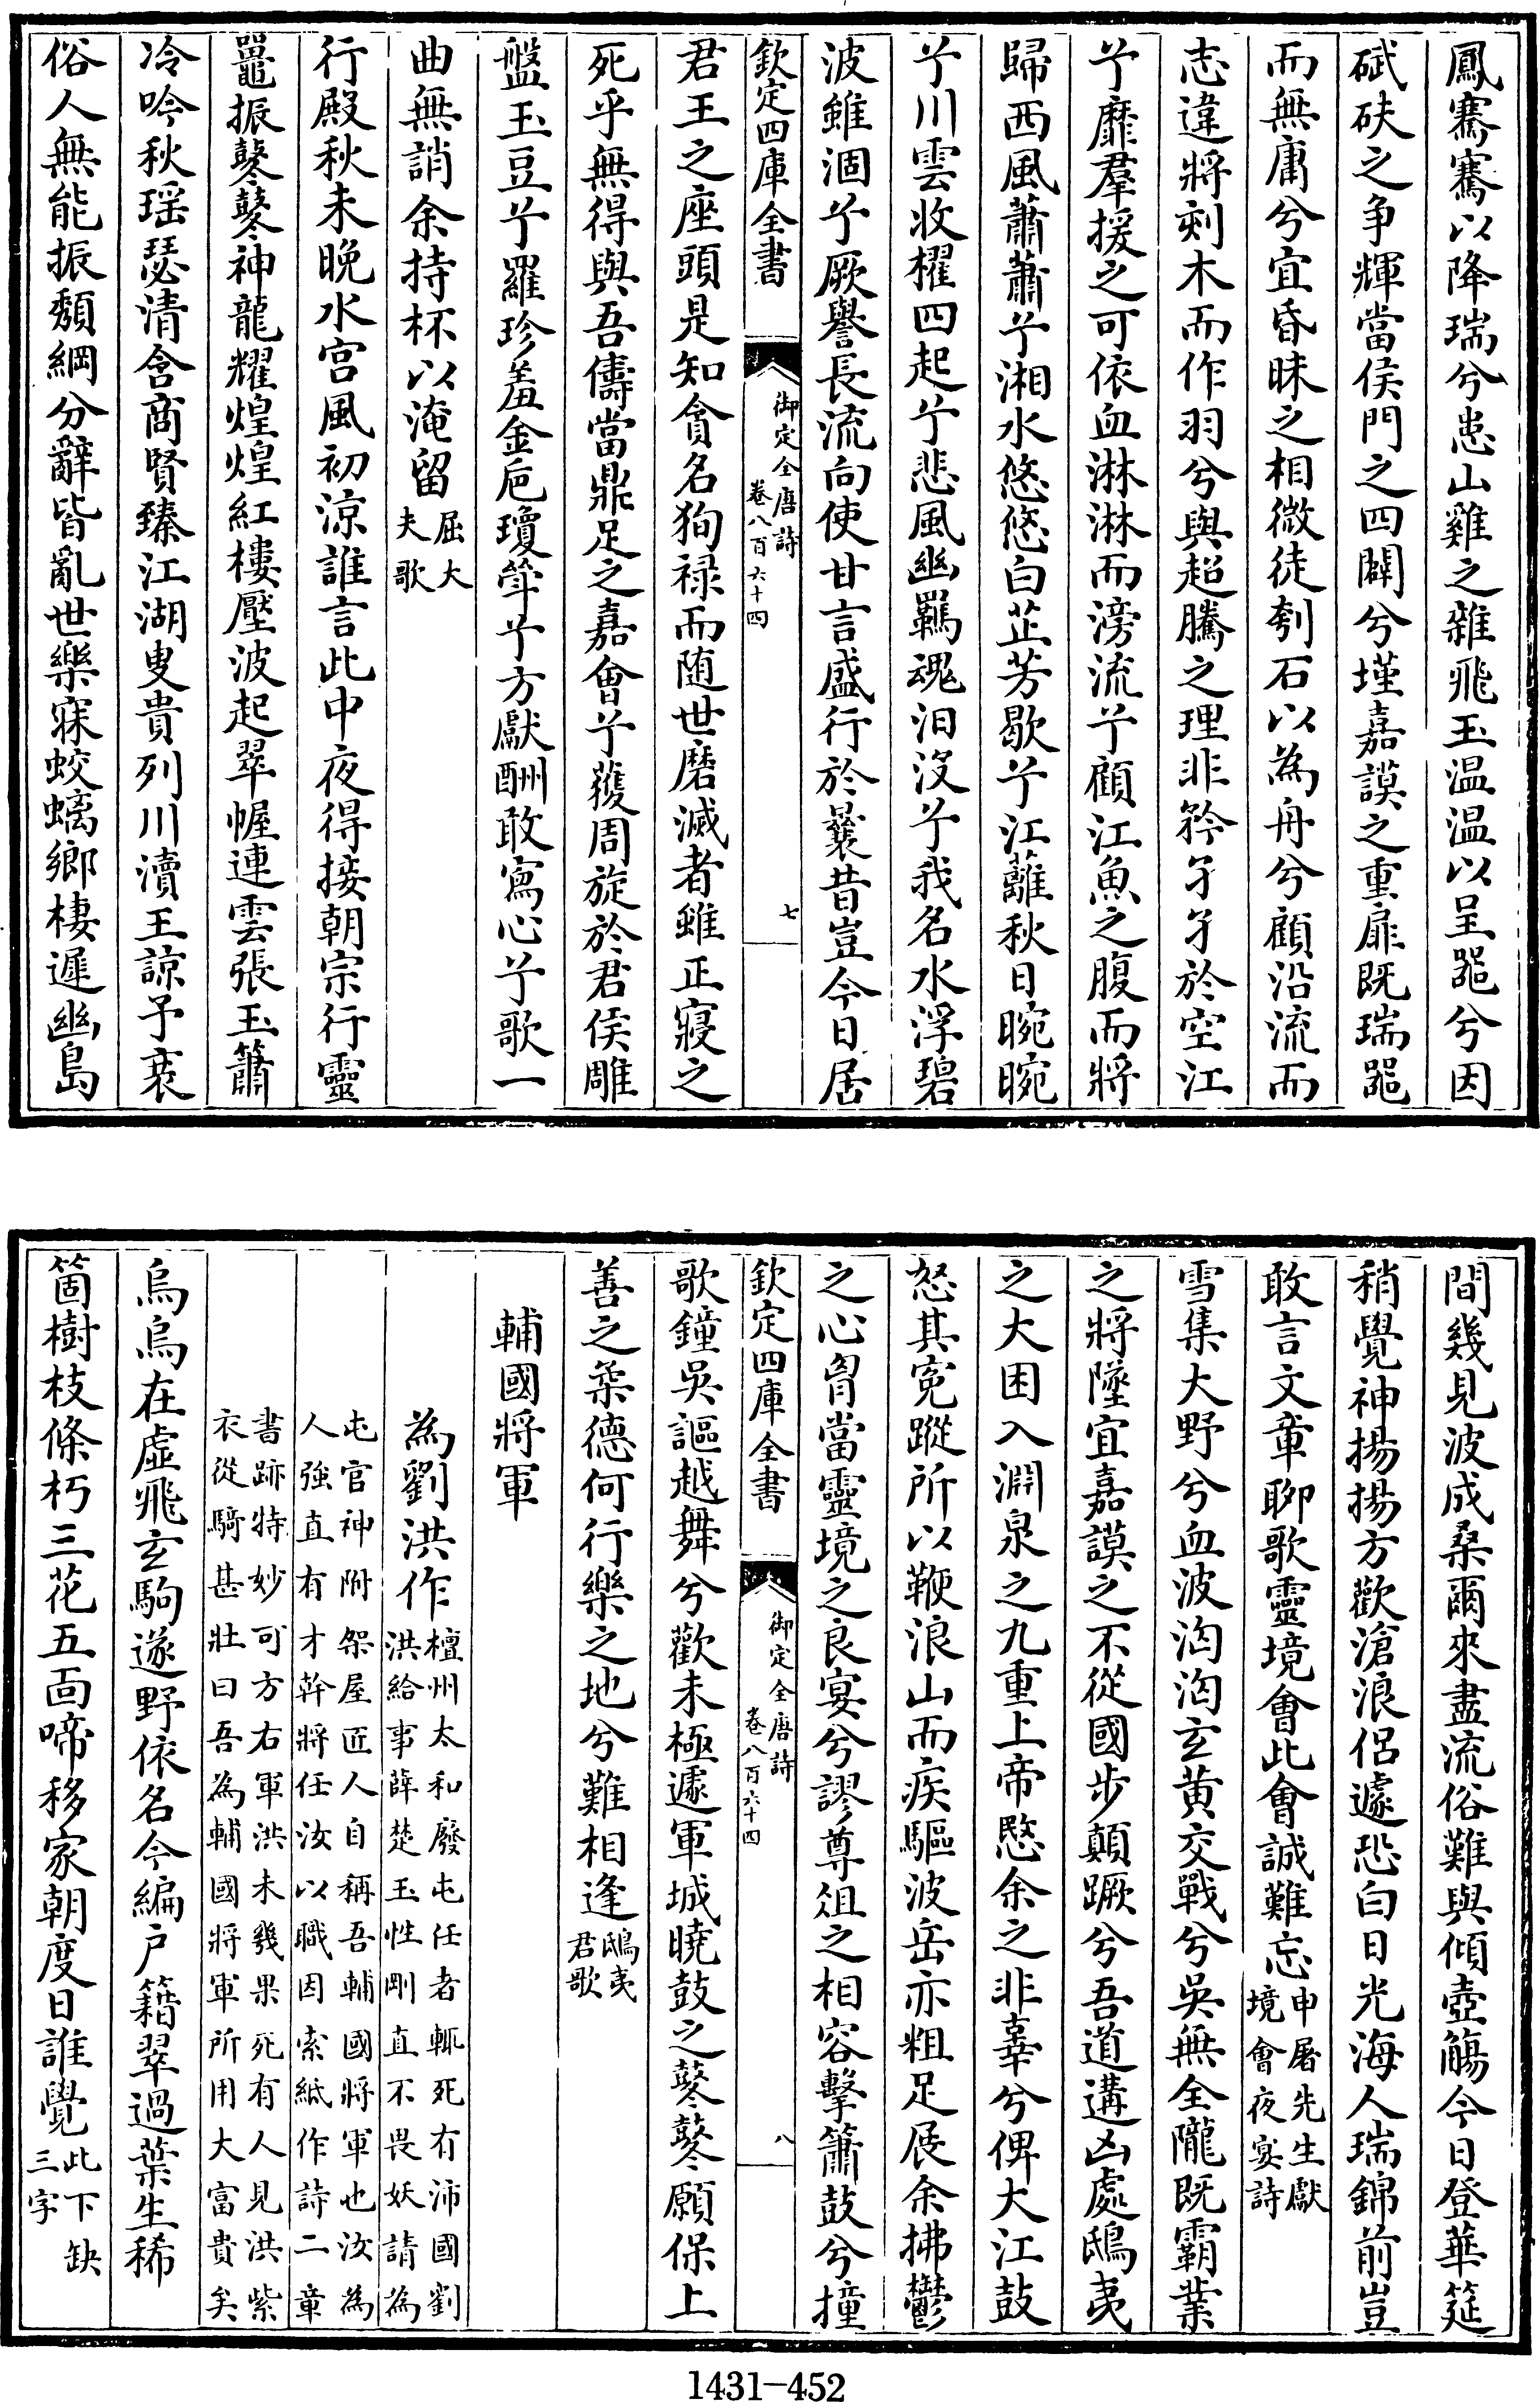 鳳騫騫以降瑞兮患山雞之雜飛玉温温以呈噐兮因
碔砆之争輝當侯門之四闢兮墐嘉謨之重扉既瑞噐
而無庸兮宜昏昧之相微徒刳石以為舟兮顧沿流而
志違將刻木而作羽兮與超騰之理非矜孑孑於空江
兮靡羣援之可依血淋淋而滂流兮顧江魚之腹而將
歸西風蕭蕭兮湘水悠悠白芷芳歇兮江蘺秋日晼晼
兮川雲收櫂四起兮悲風幽羈魂汨没兮我名水浮碧
波雖涸兮厥譽長流向使甘言盛行於曩昔豈今日居
欽定四庫全書
御定全唐詩
卷八百六十四
七
君王之座頭是知貪名狥禄而随世磨滅者雖正寢之
死乎無得與吾儔當鼎足之嘉會兮獲周旋於君侯雕
盤玉豆兮羅珍羞金卮瓊斝兮方獻酬敢寫心兮歌一
曲無誚余持杯以淹留屈大
夫歌
行殿秋未晚水宫風初涼誰言此中夜得接朝宗行靈
鼉振鼕鼕神龍耀煌煌紅樓壓波起翠幄連雲張玉簫
冷吟秋瑶瑟清含商賢臻江湖叟貴列川瀆王諒予衰
俗人無能振頽綱分辭皆亂世樂寐蛟螭鄉棲遲幽島
間幾見波成桑爾來盡流俗難與傾壺觴今日登華筵
稍覺神揚揚方歡滄浪侣遽恐白日光海人瑞錦前豈
敢言文章聊歌靈境會此會誠難忘申屠先生獻
境會夜宴詩
雪集大野兮血波洶洶玄黄交戰兮吳無全隴既霸業
之將墜宜嘉謨之不從國步顛蹶兮吾道遘凶處鴟夷
之大困入淵泉之九重上帝愍余之非辜兮俾大江鼓
怒其寃蹤所以鞭浪山而疾驅波岳亦粗足展余拂鬱
之心胷當靈境之良宴兮謬尊俎之相容擊簫鼓兮撞
欽定四庫全書
御定全唐詩
卷八百六十四
八
歌鐘吳謳越舞兮歡未極遽軍城曉鼓之鼕鼕願保上
善之柔德何行樂之地兮難相逢鴟夷
君歌
輔國將軍
為劉洪作檀州太和廢屯任者輒死有沛國劉
洪給事薛楚玉性剛直不畏妖請為
屯官神附架屋匠人自稱吾輔國將軍也汝為
人強直有才幹將任汝以職因索紙作詩二章
書跡特妙可方右軍洪未幾果死有人見洪紫
衣從騎甚壯曰吾為輔國將軍所用大富貴矣
烏烏在虚飛玄駒遂野依名今編户籍翠過葉生稀
箇樹枝條朽三花五面啼移家朝度日誰覺此下缺
三字
1431-452